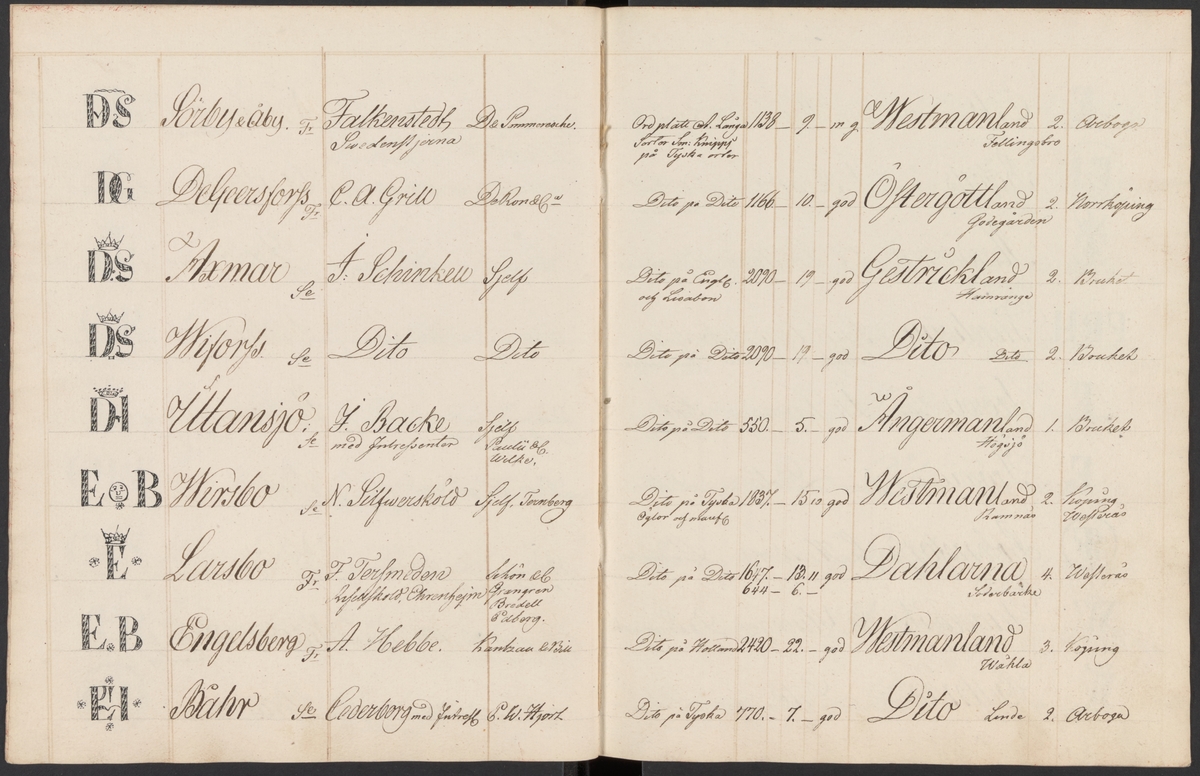 DS Sörby & Åby. Fr Falkenstedt, De Pommeresche. Ord plått A. Långa 1138 – 9 – m g Westmanland 2. Arboga
Swedenstjerna Sorter Sm: Knipps Fellingsbro
på Tyska orter
DG DeGeersforss Fr C. A. Grill DeRon & C Dito på Dito 1166 – 10 – god Östergöttland 2. Norrköping
Godegården
DS Axmar Se A: Schinkell Sjelf Dito på Engl. 2090 – 19 – god Gestrickland 2. Bruket
och Lisabon Hamrånge
DS Wiforss Se Dito Dito Dito på Dito 2090 – 19 – god Dito Dito 2. Bruket
DH Uttansjö: Se J. Backe Sjelf Dito på Dito 550. – 5. – god Ångermanland 1. Bruket
med Intressenter Paulii & C. Högsjö
Wilke.
E B Wirsbo Se N. Silfwersköld Sjelf, Tornberg Dito på Tyska 1837. – 15 10 god Westmanland 2. Köping
Ramnäs Westerås
E Larsbo Fr F. Tersmeden Schön & C Dito på Dito 1617. – 13. 11 god Dahlarna 4. Westerås
Ehrenheim Grangren 644 – 6. – Söderbärke
Bredell
Edberg.
E.B Engelsberg Fr A. Hebbe. Dito på Holland 2420 – 22. – god Westmanland 3. Köping
Wåhla
EH Båhr Se Cederborg med Intress C. W. Hjort Dito på Tyska 770. – 7. – god Dito Linde 2. Arboga